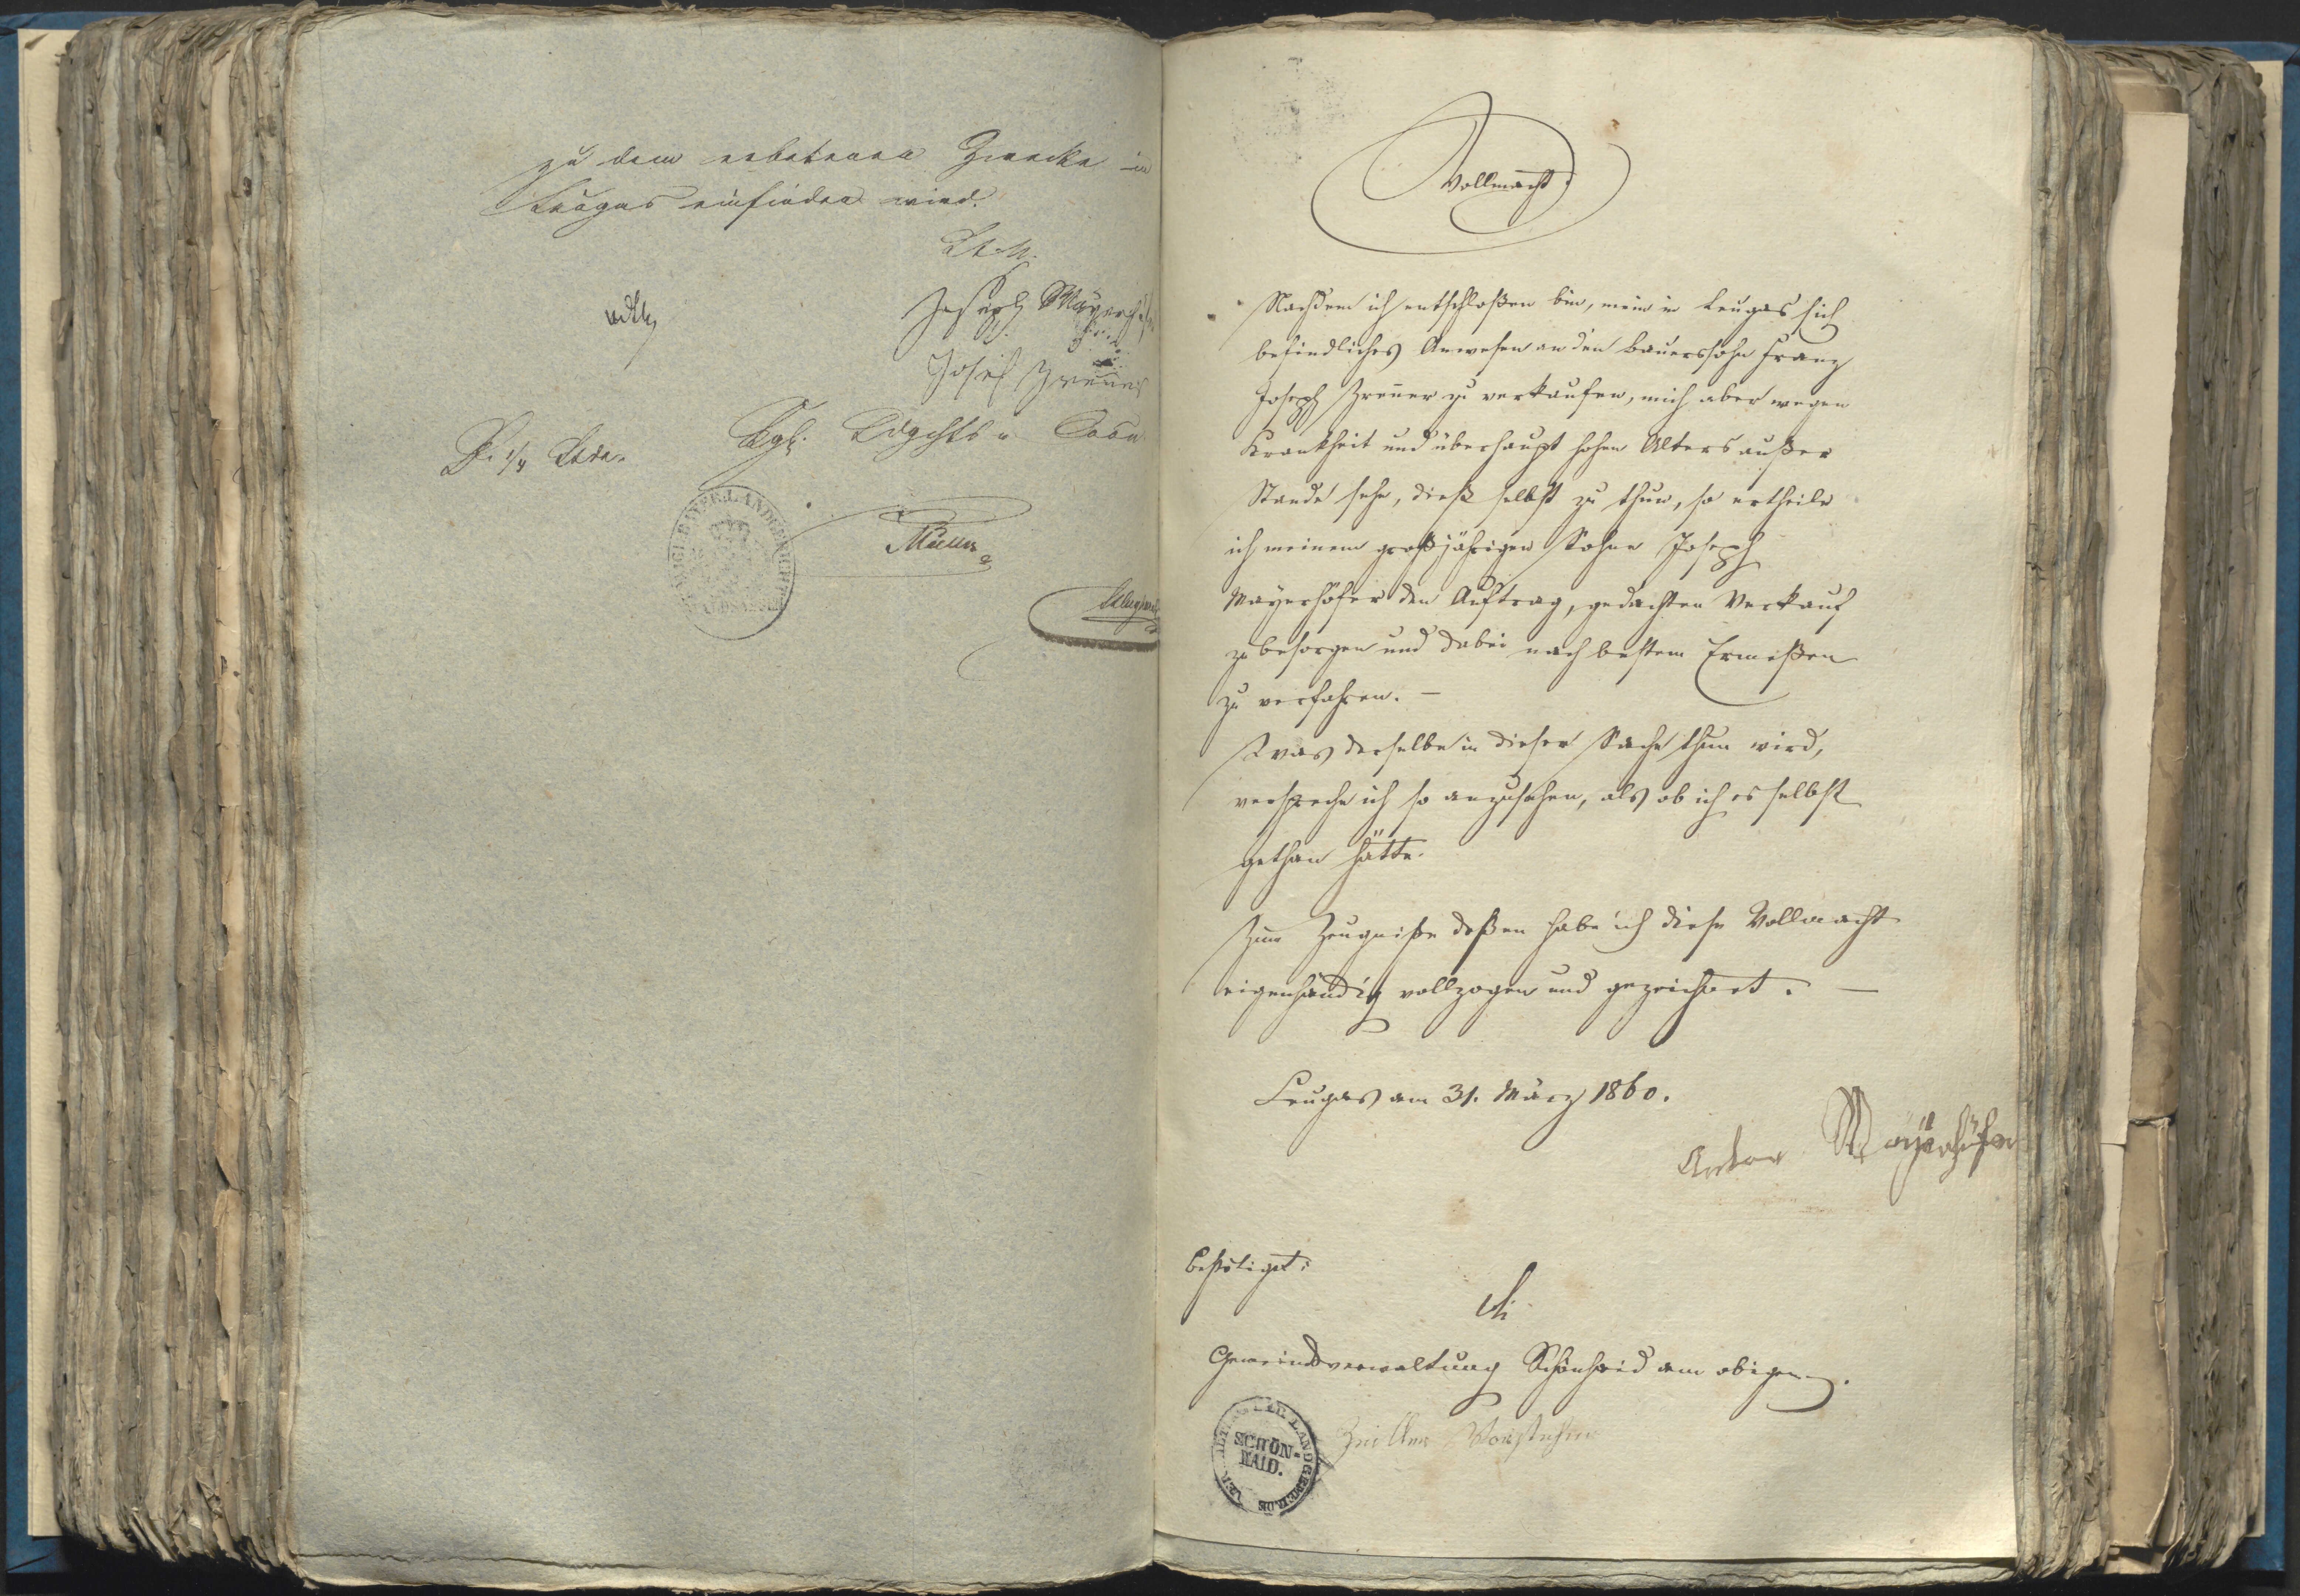 zu dem erbetenen Zwecke in
Leugas einfinden wird.
Joseph Mayerhöfer
Josef Zrenner
Kgl. Ldgchts
KOENIGL. BAYER. LANDGERICHT
WALDSASSEN
Müller
Vollmacht.
Nachdem ich entschloßen bin, mein in Leugas sich
befindliches Anwesen an den Bauerssohn Franz
Joseph Zrenner zu verkaufen, mich aber wegen
Krankheit und überhaupt hohen Alters außer
Stande sehe, dieß selbst zu thun, so ertheile
ich meinem großjährigen Sohne Joseph
Mayerhöfer den Auftrag, gedachten Verkauf
zu besorgen und dabei nach bestem Ermeßen
zu verfahren. —
Was derselbe in dieser Sache thun wird,
verspreche ich so anzusehen, als ob ich es selbst
gethan hätte.
Zum Zeugniße deßen habe ich diese Vollmacht
eigenhändig vollzogen und gezeichnet. —
Leugas am 31. März 1860.
Anton Mayerhöfer
Bestätiget:
die
Gemeindeverwaltung Schönhaid am obigen.
SCHÖN=
HAID.
LANDGEMEINDE
Vorsteher